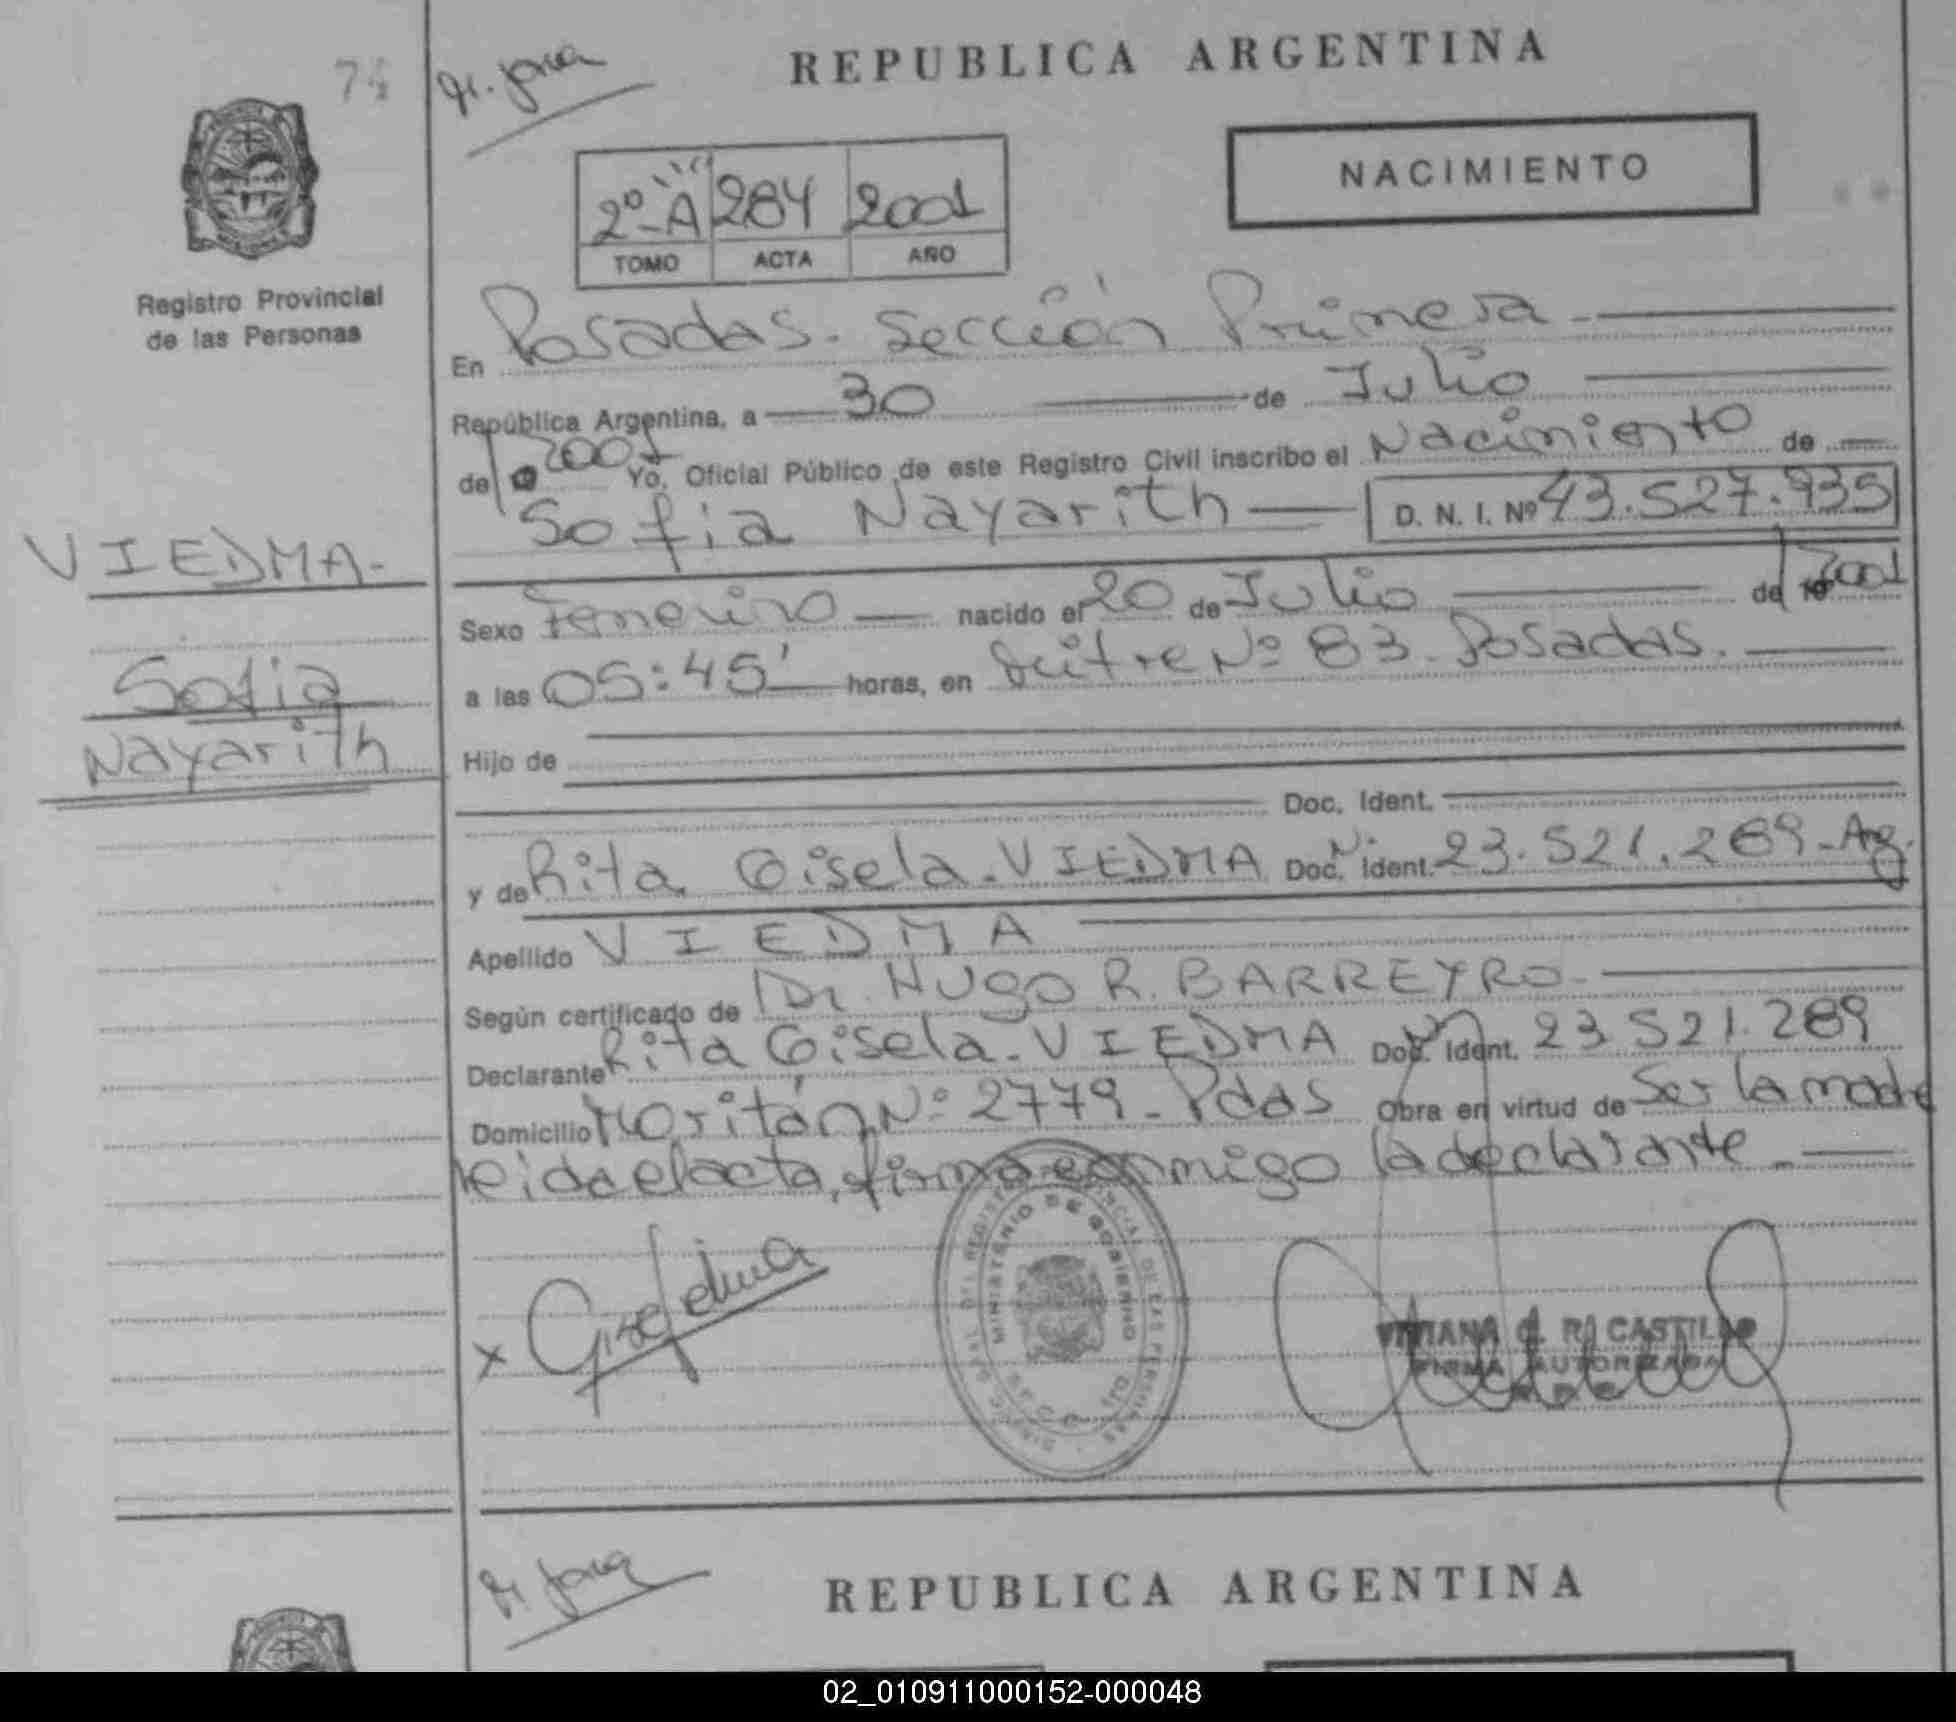 REPUBLICA ARGENTINA
NACIMIENTO
2º-A 284 2001
TOMO ACTA AÑO
Registro Provincial
de las Personas
En Posadas. Sección Primera
República Argentina, a 30 de Julio
de 2001 Yo, Oficial Público de este Registro Civil inscribo el Nacimiento de
Sofia Nayarith D. N. I. Nº 43.527.935
VIEDMA
Sofia
Nayarith
Sexo Femenino nacido el 20 de Julio de 19 2001
a las 05:45' horas, en Mitre Nº 83. Posadas.
Hijo de
Doc. Ident.
y de Rita Gisela VIEDMA Doc. Ident. 23.521.289 Ag.
Apellido VIEDMA
Según certificado de Dr. HUGO R. BARREYRO
Declarante Rita Gisela VIEDMA Doc. Ident. 23.521.289
Domicilio Nº 2779 Pdas Obra en virtud de Ser la madre
leida el acta, firma conmigo la declarante
MINISTERIO DE GOBIERNO
CASTILLO
FIRMA AUTORIZADA
REPUBLICA ARGENTINA
02_010911000152-000048